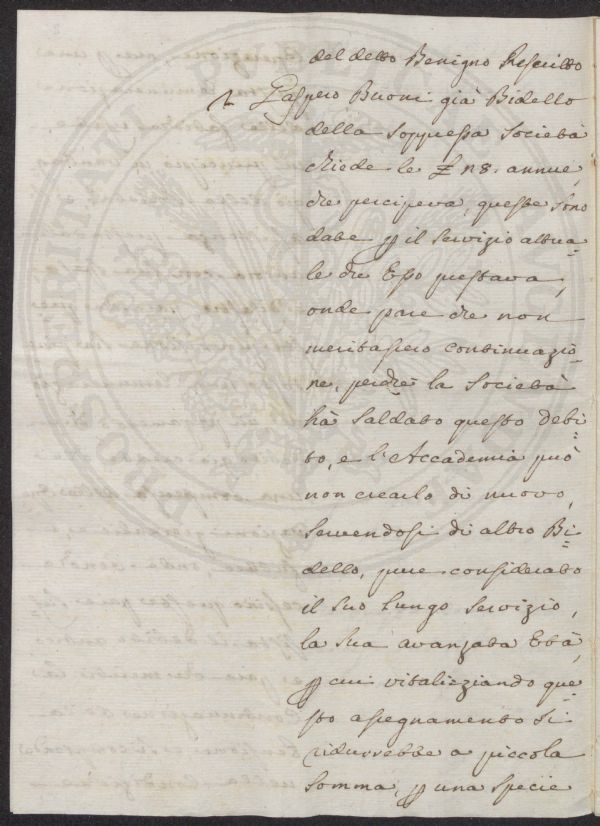 del detto Benigno Rescritto
Gaspero Buoni già Bidello
della soppressa Società
chiede le £ 118. annue,
che percipeva, queste sono
date p il servizio attua=
le che Esso prestava,
onde pare che non
meritassero continuazio=
ne, perchè la Società
hà saldato questo debi=
to, e l'Accademia può
non crearlo di nuovo,
servendosi di altro Bi=
dello, pure considerato
il suo lungo servizio,
la sua avanzata Età,
p cui vitaliziando que=
sto assegnamento si
ridurrebbe a piccola
somma, p una specie
PROSPERITATI PUBLICAE